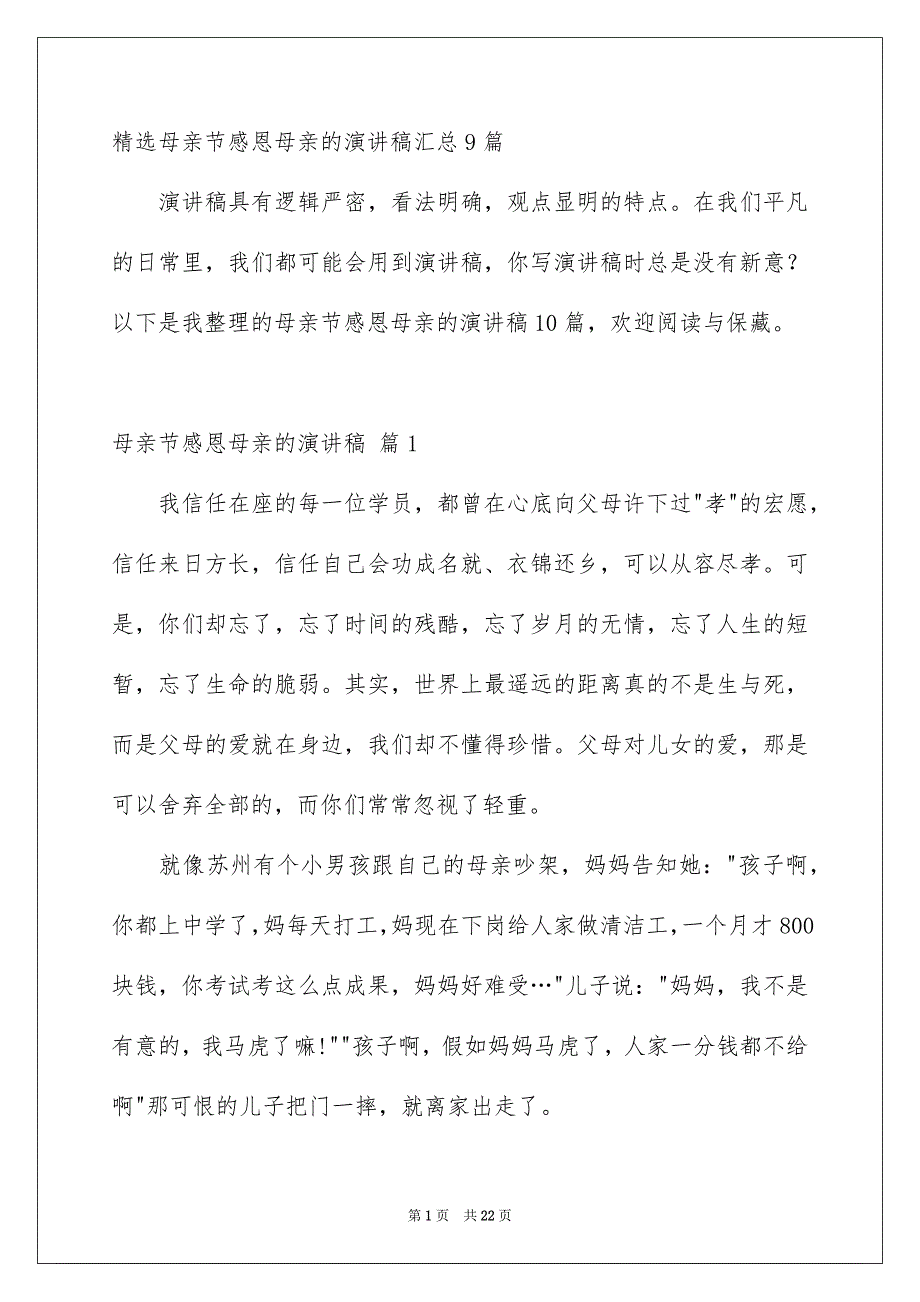 精选母亲节感恩母亲的演讲稿汇总9篇
演讲稿具有逻辑严密，看法明确，观点显明的特点。在我们平凡
的日常里，我们都可能会用到演讲稿，你写演讲稿时总是没有新意？
以下是我整理的母亲节感恩母亲的演讲稿10篇，欢迎阅读与保藏。
母亲节感恩母亲的演讲稿 篇1
我信任在座的每一位学员，都曾在心底向父母许下过"孝"的宏愿，
信任来日方长，信任自己会功成名就、衣锦还乡，可以从容尽孝。可
是，你们却忘了，忘了时间的残酷，忘了岁月的无情，忘了人生的短
暂，忘了生命的脆弱。其实，世界上最遥远的距离真的不是生与死，
而是父母的爱就在身边，我们却不懂得珍惜。父母对儿女的爱，那是
可以舍弃全部的，而你们常常忽视了轻重。
就像苏州有个小男孩跟自己的母亲吵架，妈妈告知她："孩子啊，
你都上中学了，妈每天打工，妈现在下岗给人家做清洁工，一个月才800
块钱，你考试考这么点成果，妈妈好难受…"儿子说："妈妈，我不是
有意的，我马虎了嘛！""孩子啊，假如妈妈马虎了，人家一分钱都不给
啊"那可恨的儿子把门一摔，就离家出走了。
第1页 共22页